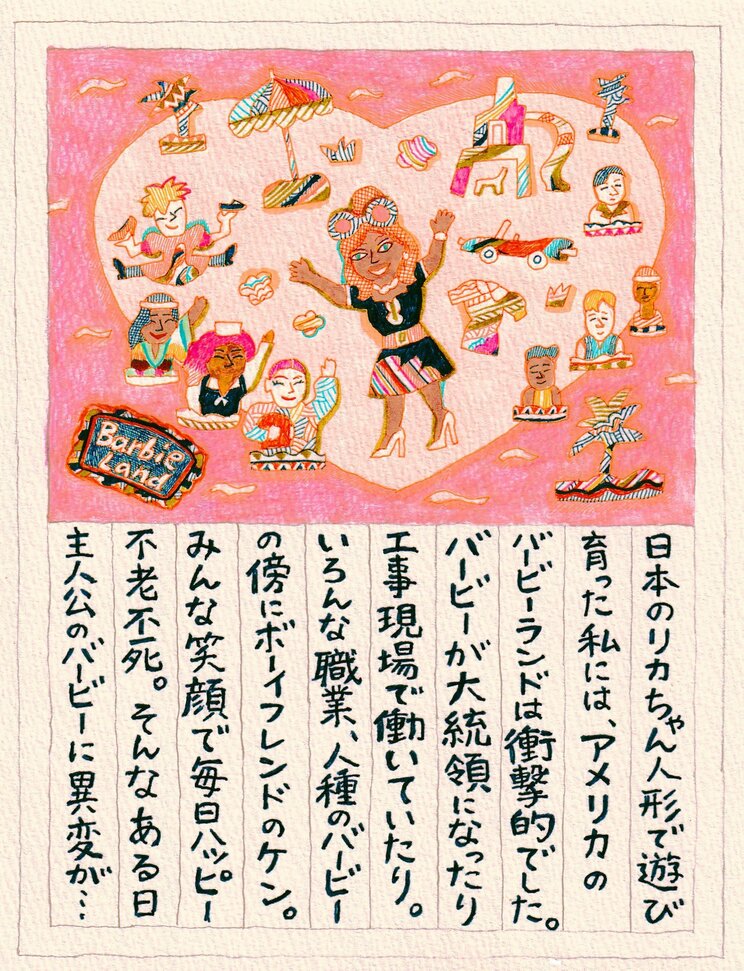 Barbie
Land
日本のリカちゃん人形で遊び
育った私には、アメリカの
バービーランドは衝撃的でした。
バービーが大統領になったり
工事現場で働いていたり。
いろんな職業、人種のバービー
の傍にボーイフレンドのケン。
みんな笑顔で毎日ハッピー
不老不死。そんなある日
主人公のバービーに異変が…